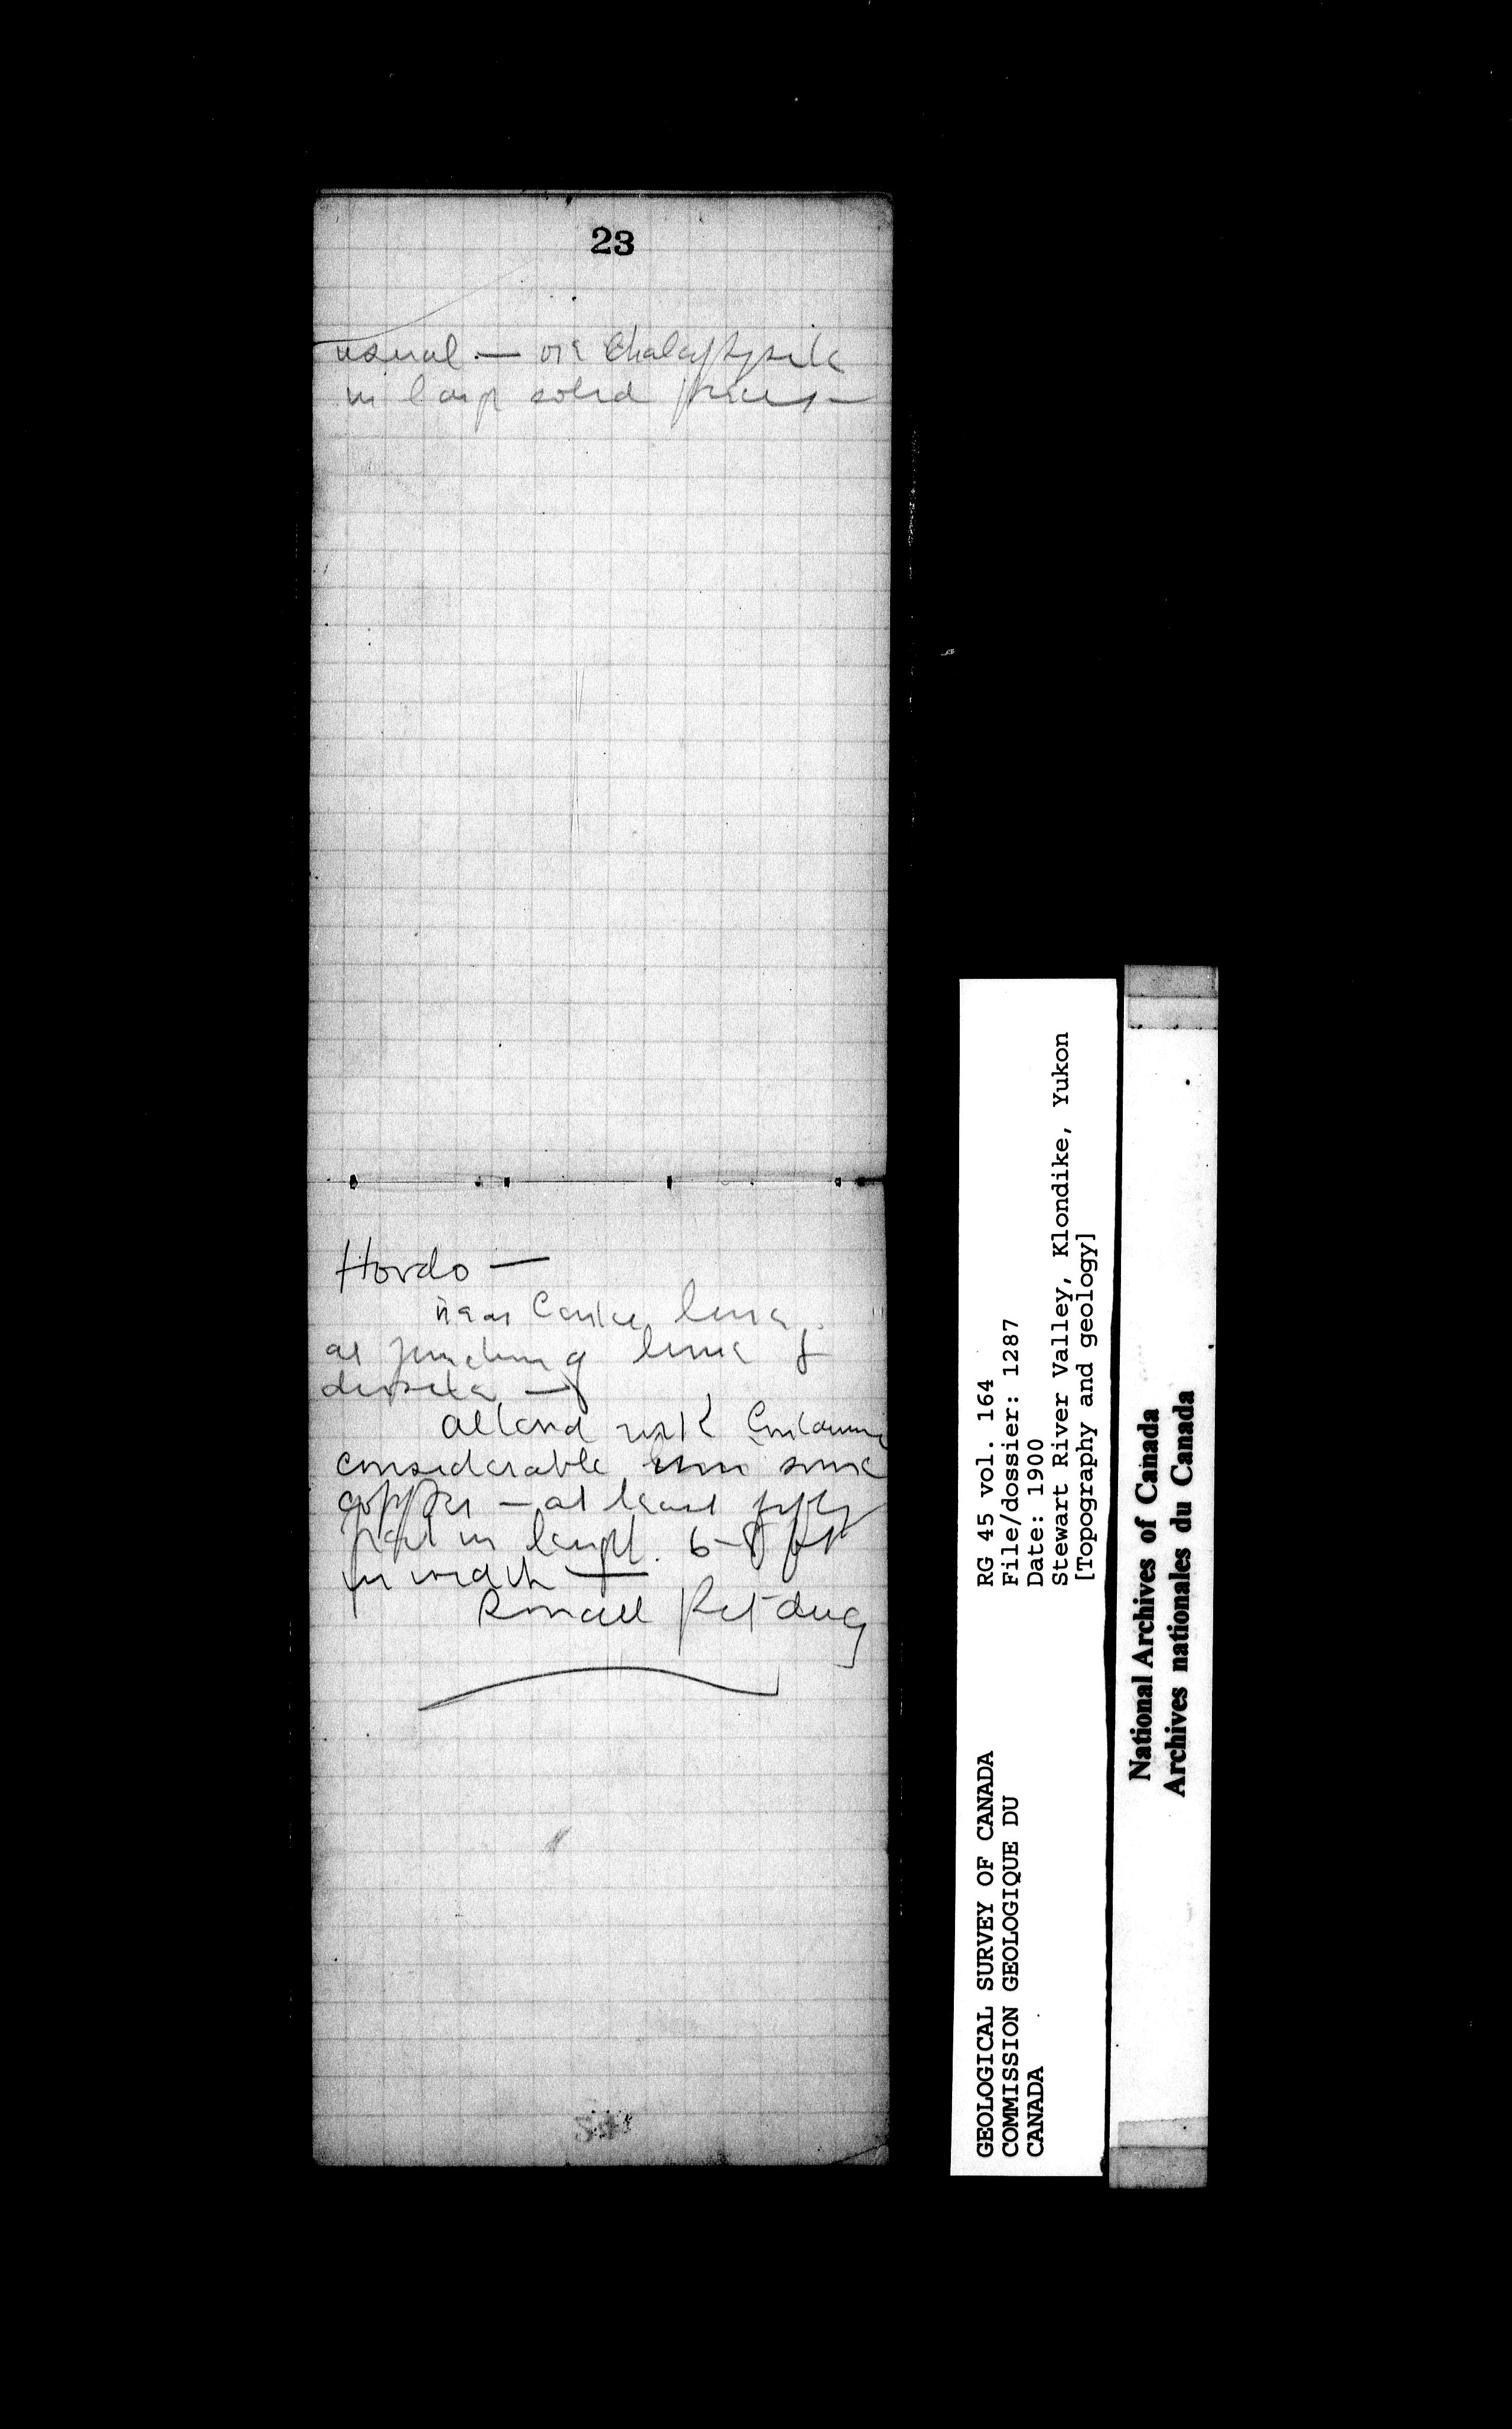 23
usual — ore Chalcopyrite
in large solid pieces —
Hordo —
near Contact lime,
at junction of lime &
altered rock containing
considerable iron some
copper — at least fifty
feet in length. 6-8 ft
in width —
Small pit dug
RG 45 vol. 164
File/dossier: 1287
Date: 1900
Stewart River Valley, Klondike, Yukon
[Topography and geology]
GEOLOGICAL SURVEY OF CANADA
COMMISSION GEOLOGIQUE DU
CANADA
National Archives of Canada
Archives nationales du Canada